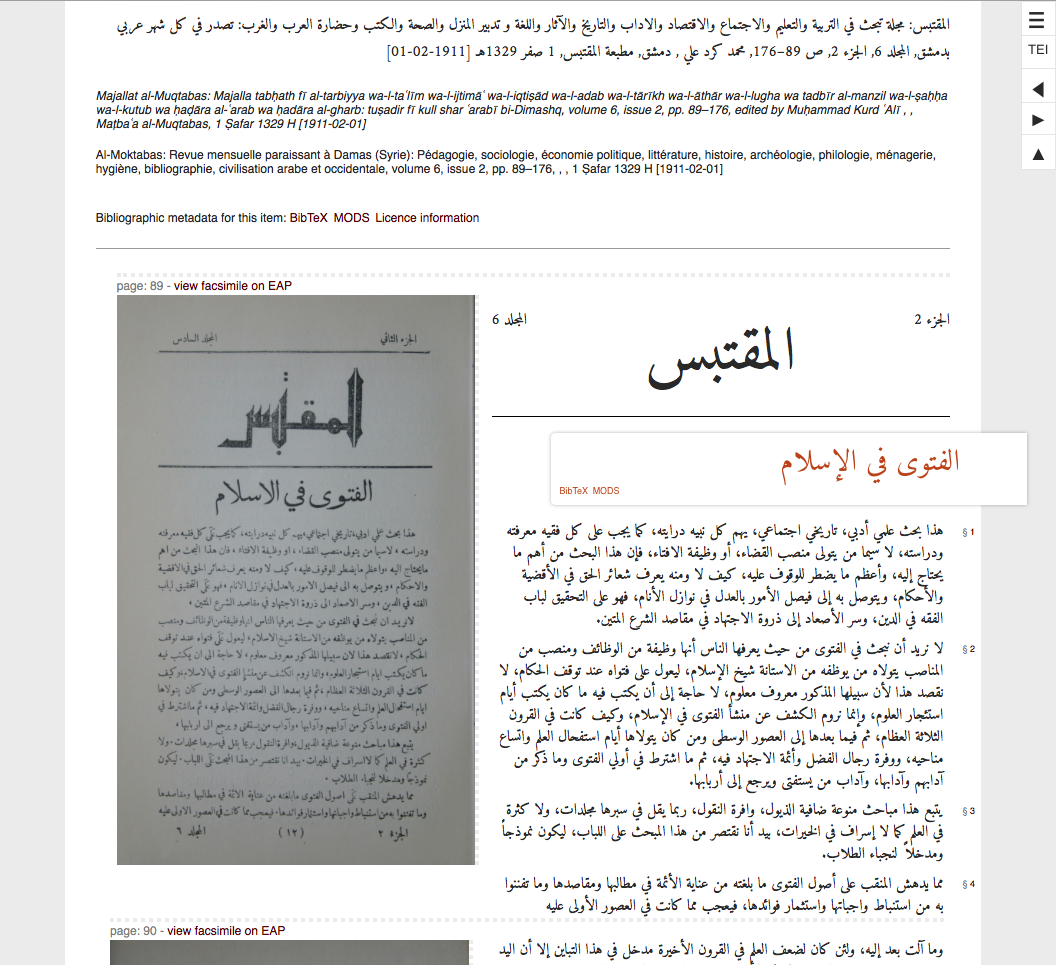 المقتبس: مجلة تبحث في التربية والتعليم والاجتماع والاقتصاد والاداب والتاريخ والآثار واللغة و تدبير المنزل والصحة والكتب وحضارة العرب والغرب: تصدر في كل شهر عربي
بدمشق, المجلد 6, الجزء 2, ص 89–176, محمد كرد علي , دمشق, مطبعة المقتبس, 1 صفر 1329هـ [1911-02-01]
TEI
Majallat al-Muqtabas: Majalla tabḥath fī al-tarbiyya wa-l-taʿlīm wa-l-ijtimāʿ wa-l-iqtiṣād wa-l-adab wa-l-tārīkh wa-l-āthār wa-l-lugha wa tadbīr al-manzil wa-l-ṣaḥḥa
wa-l-kutub wa ḥaḍāra al-ʿarab wa ḥaḍāra al-gharb: tuṣadir fī kull shar ʿarabī bi-Dimashq, volume 6, issue 2, pp. 89–176, edited by Muḥammad Kurd ʿAlī , ,
Maṭbaʿa al-Muqtabas, 1 Ṣafar 1329 H [1911-02-01]
Al-Moktabas: Revue mensuelle paraissant à Damas (Syrie): Pédagogie, sociologie, économie politique, littérature, histoire, archéologie, philologie, ménagerie,
hygiène, bibliographie, civilisation arabe et occidentale, volume 6, issue 2, pp. 89–176, , , 1 Ṣafar 1329 H [1911-02-01]
Bibliographic metadata for this item: BibTeX MODS Licence information
page: 89 - view facsimile on EAP
الجزء الثاني المجلد السادس
المقتبس
الفتوى في الاسلام
الجزء ٢ (١٢) المجلد ٦
الجزء 2 المجلد 6
المقتبس
الفتوى في الإسلام
BibTeX MODS
§ 1 هذا بحث علمي أدبي، تاريخي اجتماعي، يهم كل نبيه درايته، كما يجب على كل فقيه معرفته
ودراسته، لا سيما من يتولى منصب القضاء، أو وظيفة الافتاء، فإن هذا البحث من أهم ما
يحتاج إليه، وأعظم ما يضطر للوقوف عليه، كيف لا ومنه يعرف شعائر الحق في الأقضية
والأحكام، ويتوصل به إلى فيصل الأمور بالعدل في نوازل الأنام، فهو على التحقيق لباب
الفقه في الدين، وسر الأصعاد إلى ذروة الاجتهاد في مقاصد الشرع المتين.
§ 2 لا نريد أن نبحث في الفتوى من حيث يعرفها الناس أنها وظيفة من الوظائف ومنصب من
المناصب يتولاه من يوظفه من الاستانة شيخ الإسلام، ليعول على فتواه عند توقف الحكام، لا
نقصد هذا لأن سبيلها المذكور معروف معلوم، لا حاجة إلى أن يكتب فيه ما كان يكتب أيام
استئجار العلوم، وإنما نروم الكشف عن منشأ الفتوى في الإسلام، وكيف كانت في القرون
الثلاثة العظام، ثم فيما بعدها إلى العصور الوسطى ومن كان يتولاها أيام استفحال العلم واتساع
مناحيه، ووفرة رجال الفضل وأئمة الاجتهاد فيه، ثم ما اشترط في أولي الفتوى وما ذكر من
آدابهم وآدابها، وآداب من يستفتى ويرجع إلى أربابها.
§ 3 يتبع هذا مباحث منوعة ضافية الذيول، وافرة النقول، ربما يقل في سبرها مجلدات، ولا كثرة
في العلم كما لا إسراف في الخيرات، بيد أنا نقتصر من هذا المبحث على اللباب، ليكون نموذجاً
ومدخلاً لنجباء الطلاب.
§ 4 مما يدهش المنقب على أصول الفتوى ما بلغته من عناية الأئمة في مطالبها ومقاصدها وما تفننوا
به من استنباط واجباتها واستثمار فوائدها، فيعجب مما كانت في العصور الأولى عليه
page: 90 - view facsimile on EAP
وما آلت بعد إليه، ولئن كان لضعف العلم في القرون الأخيرة مدخل في هذا التباين إلا أن اليد